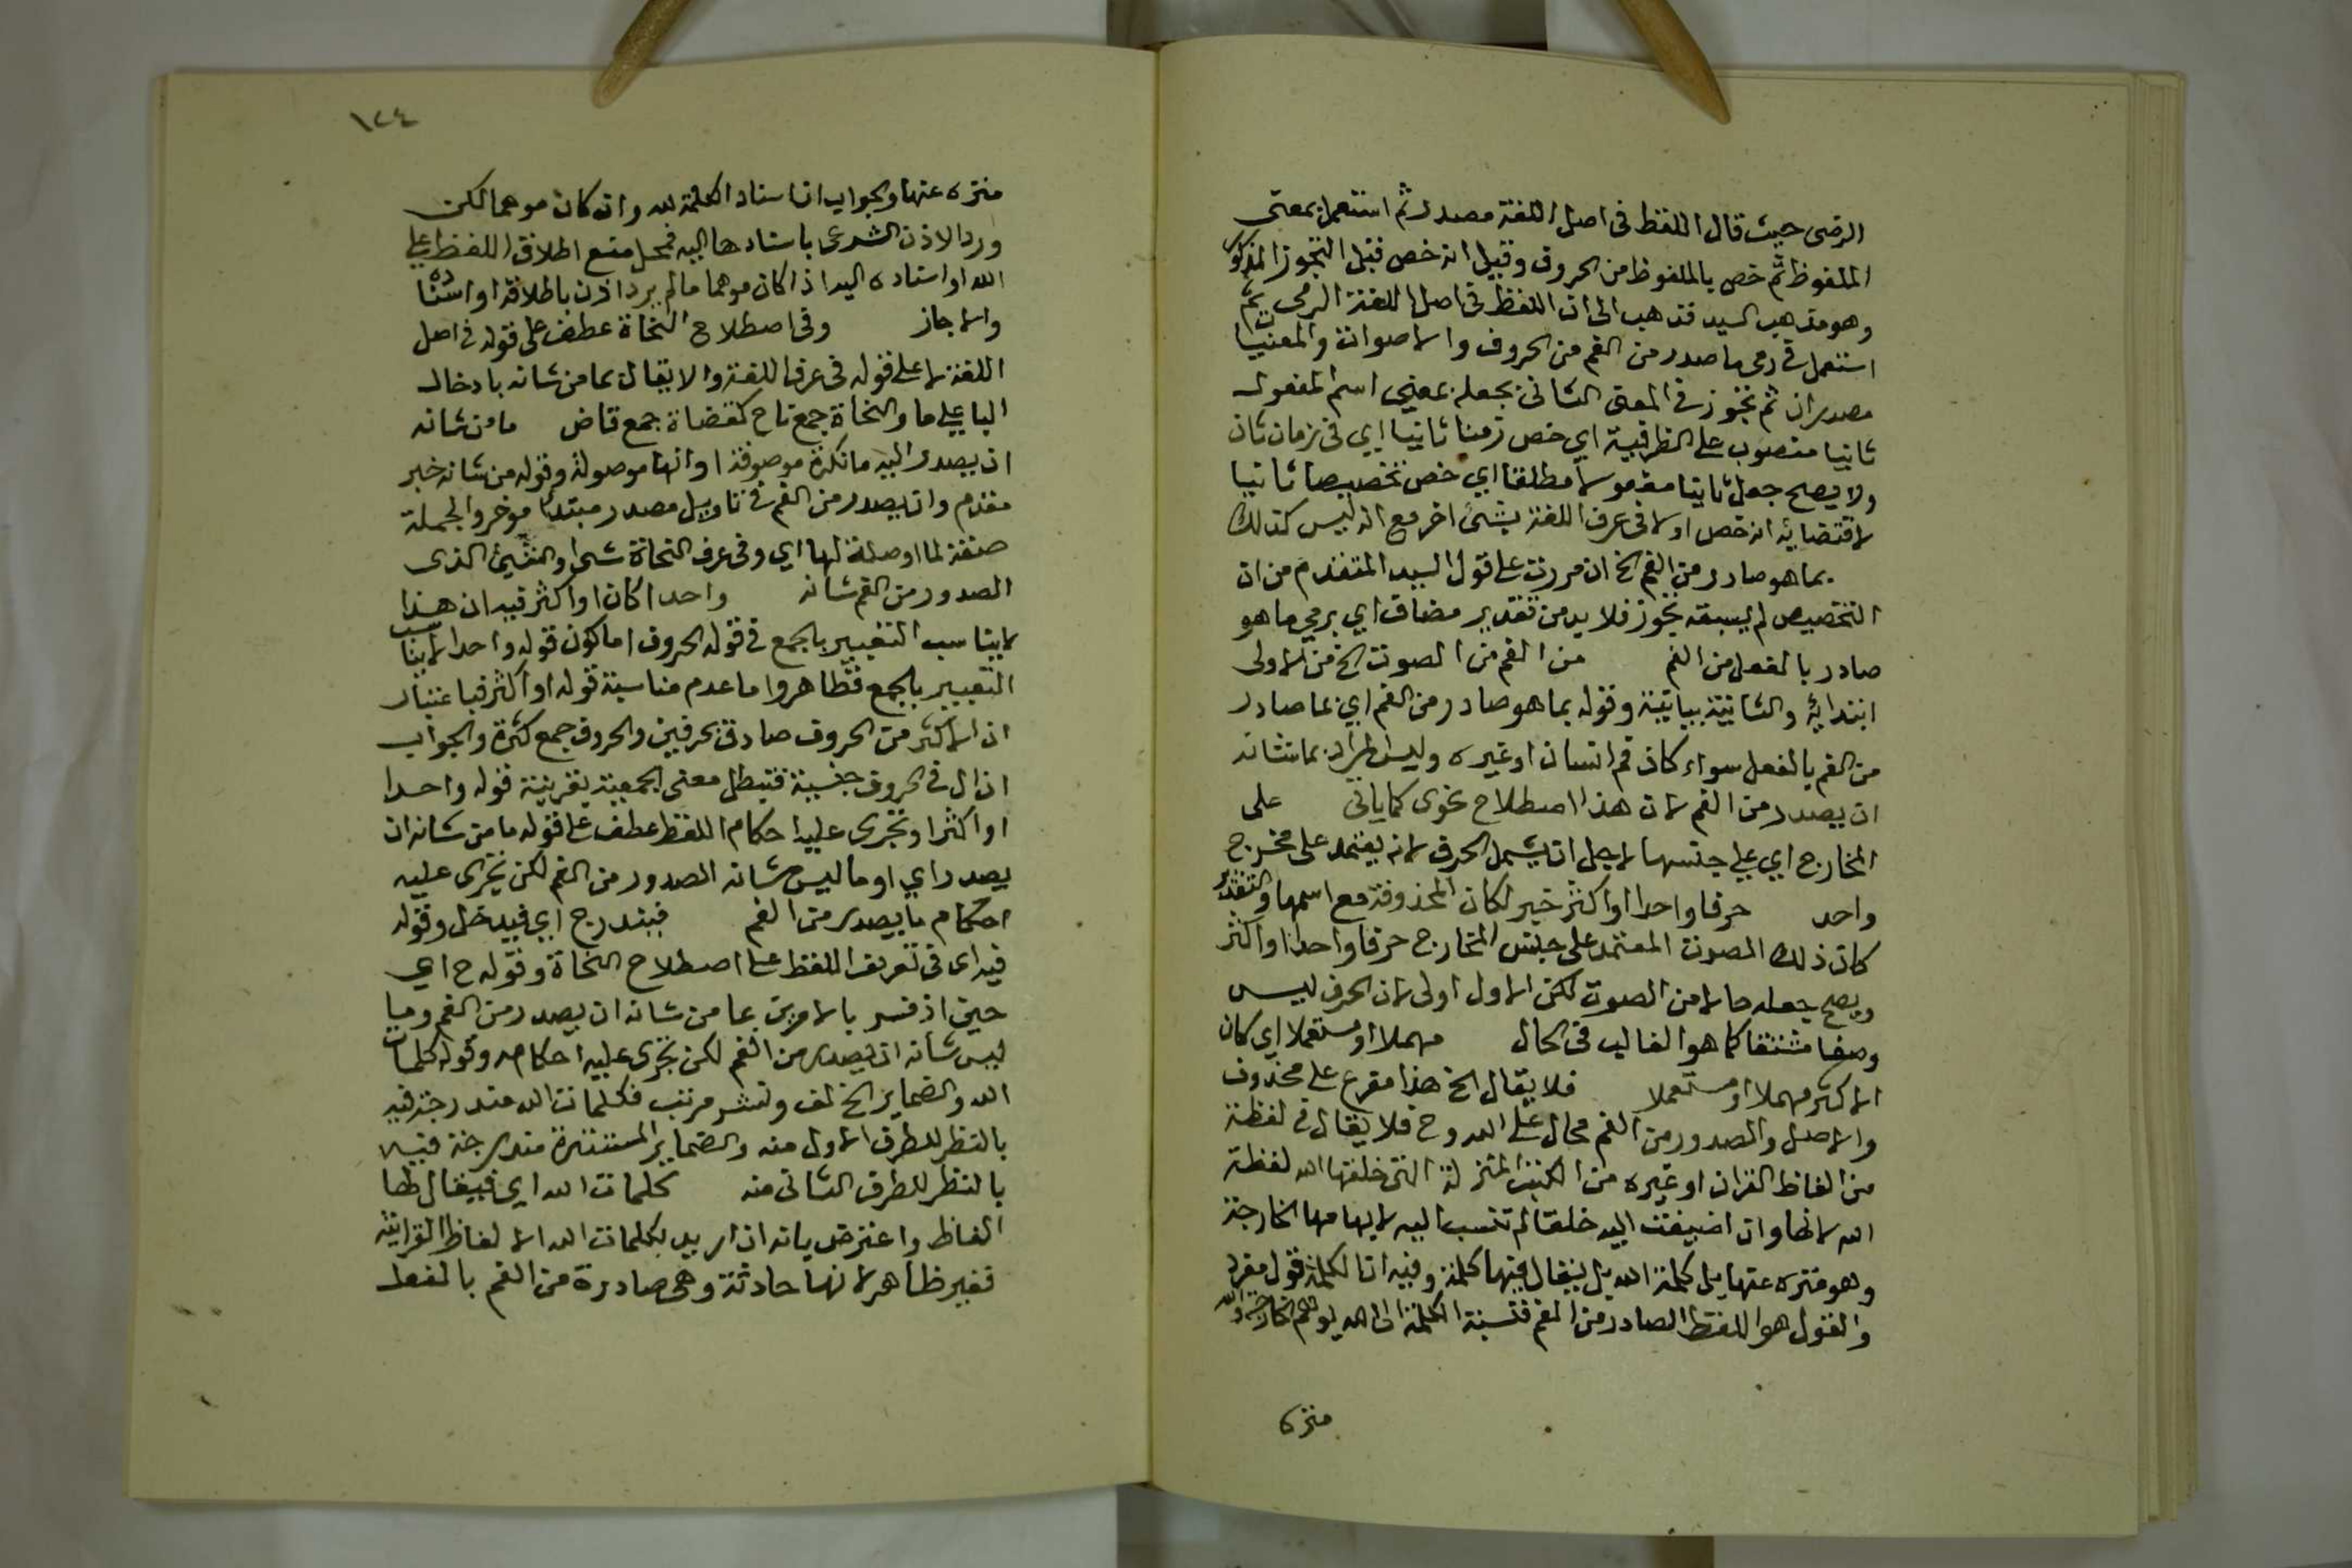 الرضى حيث قال اللفظ فى اصل اللغة مصدر ثم استعمل بمعنى
الملفوظ ثم خص بالملفوظ من الحروف وقيل انه خص قبل التجوز المذكور
وهو مذهب السيد فذهب الى ان اللفظ فى اصل اللغة الرمى ثم
استعمل فى رمى ما صدر من الفم من الحروف والاصوات والمعنيان
مصدران ثم تجوز فى المعنى الثانى بجعله بمعنى اسم المفعول
ثانيا منصوب على الظرفية اي خص زمنا ثانيا اي فى زمان ثان
ولا يصح جعل ثانيا مفعولا مطلقا اي خص تخصيصا ثانيا
لاقتضائه انه خص اولا فى عرف اللغة بشئ اخر مع انه ليس كذلك
بما هو صادر من الفم الخ ان مررت على قول السيد المتقدم من ان
التخصيص لم يسبقه تجوز فلا بد من تقدير مضاف اي برمي ما هو
صادر بالفعل من الفم من الفم من الصوت الخ من الاولى
ابتدائية والثانية بيانية وقوله بما هو صادر من الفم اي بما صادر
من الفم بالفعل سواء كان فم انسان او غيره وليس المراد بما شانه
ان يصدر من الفم لان هذا اصطلاح نحوى كما ياتى على
المخارج اي على جنسها لاجل ان يشمل الحرف لانه يعتمد على مخرج
واحد حرفا واحدا او اكثر خبر لكان المحذوفة مع اسمها والتقدير
كان ذلك الصوت المعتمد على جنس المخارج حرفا واحدا او اكثر
ويصح جعله حالا من الصوت لكن الاول اولى لان الحرف ليس
وصفا مشتقا كما هو الغالب فى الحال مهملا او مستعملا اي كان
الاكثر مهملا او مستعملا فلا يقال الخ هذا مفرع على محذوف
والاصل والصدور من الفم محال على الله وح فلا يقال فى لفظة
من الفاظ القران او غيره من الكتب المنزلة التى خلقها الله لفظة
الله لانها وان اضيفت اليه خلقا لم تنسب اليه لايهامها الخارجة
وهو منزه عنها بل كلمة الله بل يقال فيها كلمة وفيه ان الكلمة قول مفرد
والقول هو اللفظ الصادر من الفم فنسبة الكلمة الى الله يوهم الخارجة والله
منزه
١٢٤
منزه عنها والجواب ان اسناد الكلمة لله وان كان موهما لكن
ورد الاذن الشرعى باسنادها اليه فمحل منع اطلاق اللفظ على
الله او اسناده اليه اذا كان موهما ما لم يرد اذن باطلاقه او اسناده
والا جاز وفى اصطلاح النحاة عطف على قوله فى اصل
اللغة لا على قوله فى عرف اللغة والا يقال بما من شانه بادخال
البا على ما والنحاة جمع ناح كقضاة جمع قاض ما من شانه
ان يصدر اليه ما نكرة موصوفة او انها موصولة وقوله من شانه خبر
مقدم وان يصدر من الفم فى تاويل مصدر مبتدا موخر والجملة
صفة لما او صلة لها اي وفى عرف النحاة شئ او الشئ الذى
الصدور من الفم شانه واحدا كان او اكثر فيه ان هذا
لا يناسب التعبير بالجمع فى قوله الحروف اما كون قوله واحدا لا يناسب
التعبير بالجمع فظاهر واما عدم مناسبة قوله او اكثر فباعتبار
ان الاكثر من الحروف صادق بحرفين والحروف جمع كثرة والجواب
ان ال فى الحروف جنسية فتبطل معنى الجمعية بقرينة قوله واحدا
او اكثر او تجرى عليه احكام اللفظ عطف على قوله ما من شانه ان
يصدر اي او ما ليس شانه الصدور من الفم لكن تجرى عليه
احكام ما يصدر من الفم فيندرج اي فيدخل وقوله
فيه اى فى تعريف اللفظ على اصطلاح النحاة وقوله ح اي
حين اذ فسر بالامرين بما من شانه ان يصدر من الفم وما
ليس شانه ان يصدر من الفم لكن تجرى عليه احكامه وقوله كلمات
الله والضماير الخ لف ونشر مرتب فكلمات الله مندرجة فيه
بالنظر للطرف الاول منه والضماير المستترة مندرجة فيه
بالنظر للطرف الثانى منه كلمات الله اي فيقال لها
الفاظ واعترض بانه ان اريد بكلمات الله الالفاظ القرانية
فغير ظاهر لانها حادثة وهى صادرة من الفم بالفعل